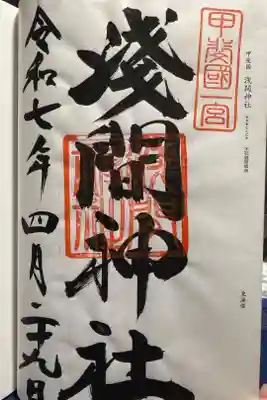 甲斐國一宮
甲斐国 浅間神社
淺間神社
令和七年四月二十九日